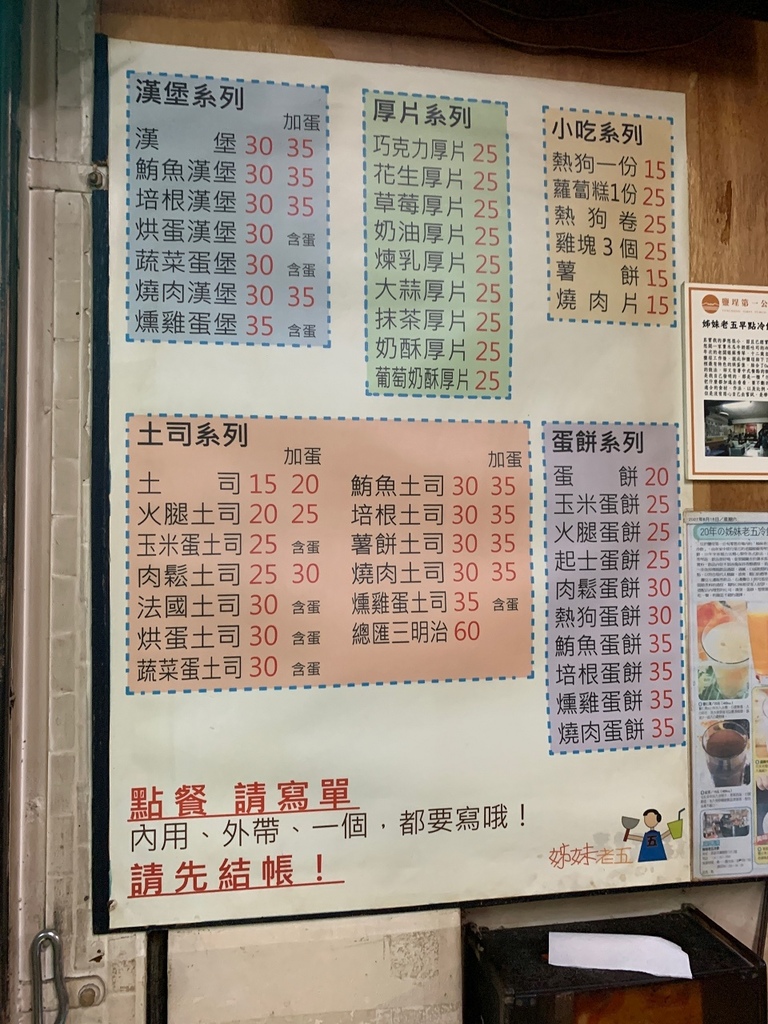 漢堡系列
加蛋
漢堡 30 35
鮪魚漢堡 30 35
培根漢堡 30 35
烘蛋漢堡 30 含蛋
蔬菜蛋堡 30 含蛋
燒肉漢堡 30 35
燻雞蛋堡 35 含蛋
厚片系列
巧克力厚片 25
花生厚片 25
草莓厚片 25
奶油厚片 25
煉乳厚片 25
大蒜厚片 25
抹茶厚片 25
奶酥厚片 25
葡萄奶酥厚片 25
小吃系列
熱狗一份 15
蘿蔔糕1份 25
熱狗卷 25
雞塊3個 25
薯餅 15
燒肉片 15
土司系列
加蛋
土司 15 20
火腿土司 20 25
玉米蛋土司 25 含蛋
肉鬆土司 25 30
法國土司 30 含蛋
烘蛋土司 30 含蛋
蔬菜蛋土司 30 含蛋
加蛋
鮪魚土司 30 35
培根土司 30 35
薯餅土司 30 35
燒肉土司 30 35
燻雞蛋土司 35 含蛋
總匯三明治 60
蛋餅系列
蛋餅 20
玉米蛋餅 25
火腿蛋餅 25
起士蛋餅 25
肉鬆蛋餅 30
熱狗蛋餅 30
鮪魚蛋餅 35
培根蛋餅 35
燻雞蛋餅 35
燒肉蛋餅 35
點餐 請寫單
內用、外帶、一個，都要寫哦！
請先結帳！
五
姊妹老五
鹽埕第一公
姊妹老五早點冷
20年の姊妹老五冷